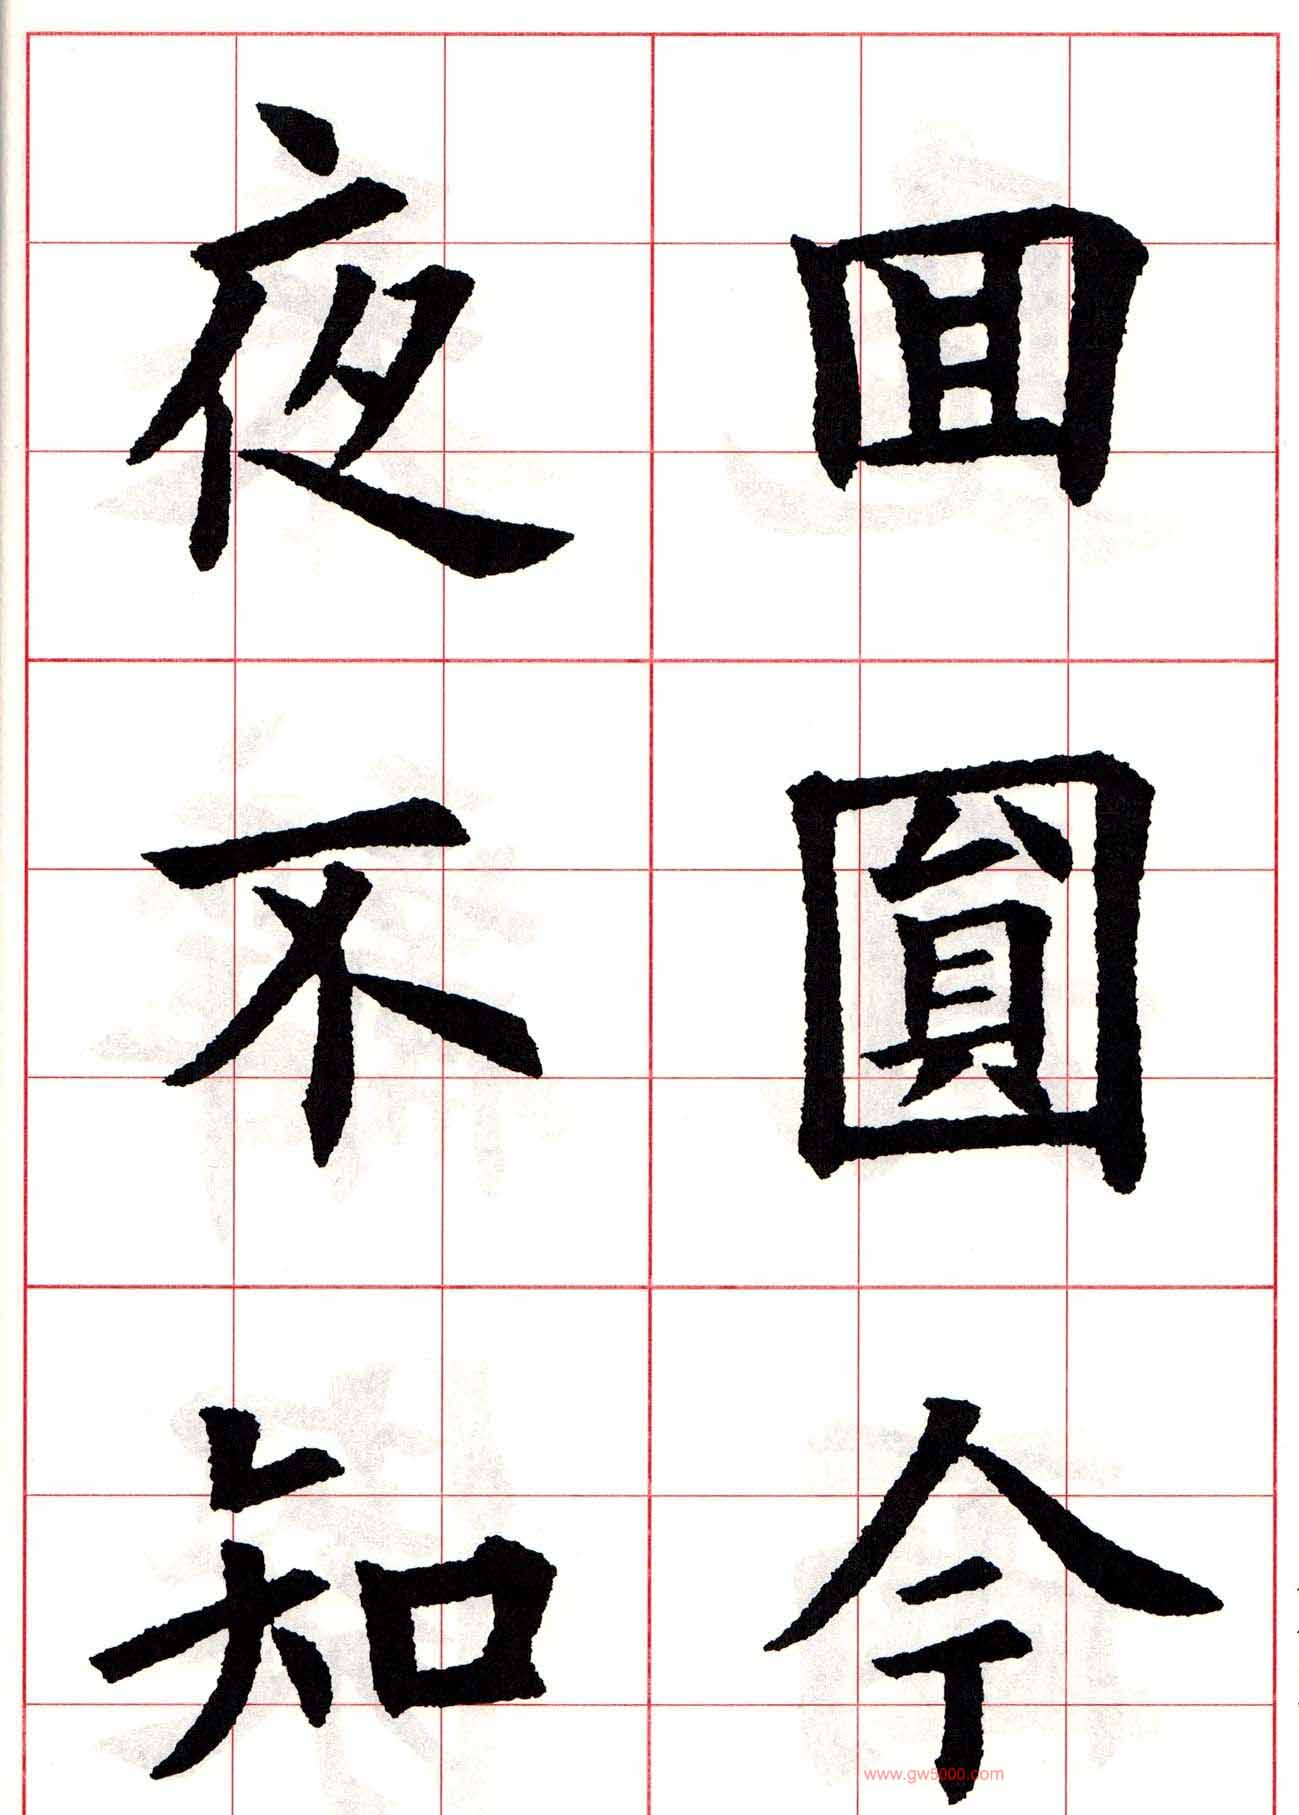 囬圓今
夜不知
www.gw5000.com